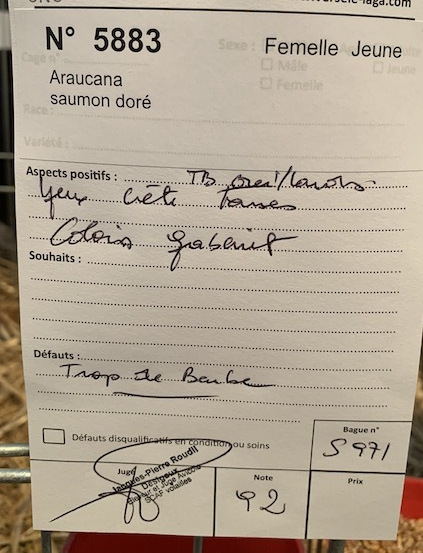 N° 5883
Femelle Jeune
Araucana
saumon doré
Cage n°
Sexe :
Mâle
Jeune
Femelle
Race :
Variété :
Aspects positifs : TB oreillons
Yeux Crête Tarses
Coloris gabarit
Souhaits :
Défauts :
Trop de Barbe
Défauts disqualificatifs en condition ou soins
Bague n°
S 971
Juge
Jacques-Pierre Roudil
Désipeux
SCAF volailles
Note
92
Prix